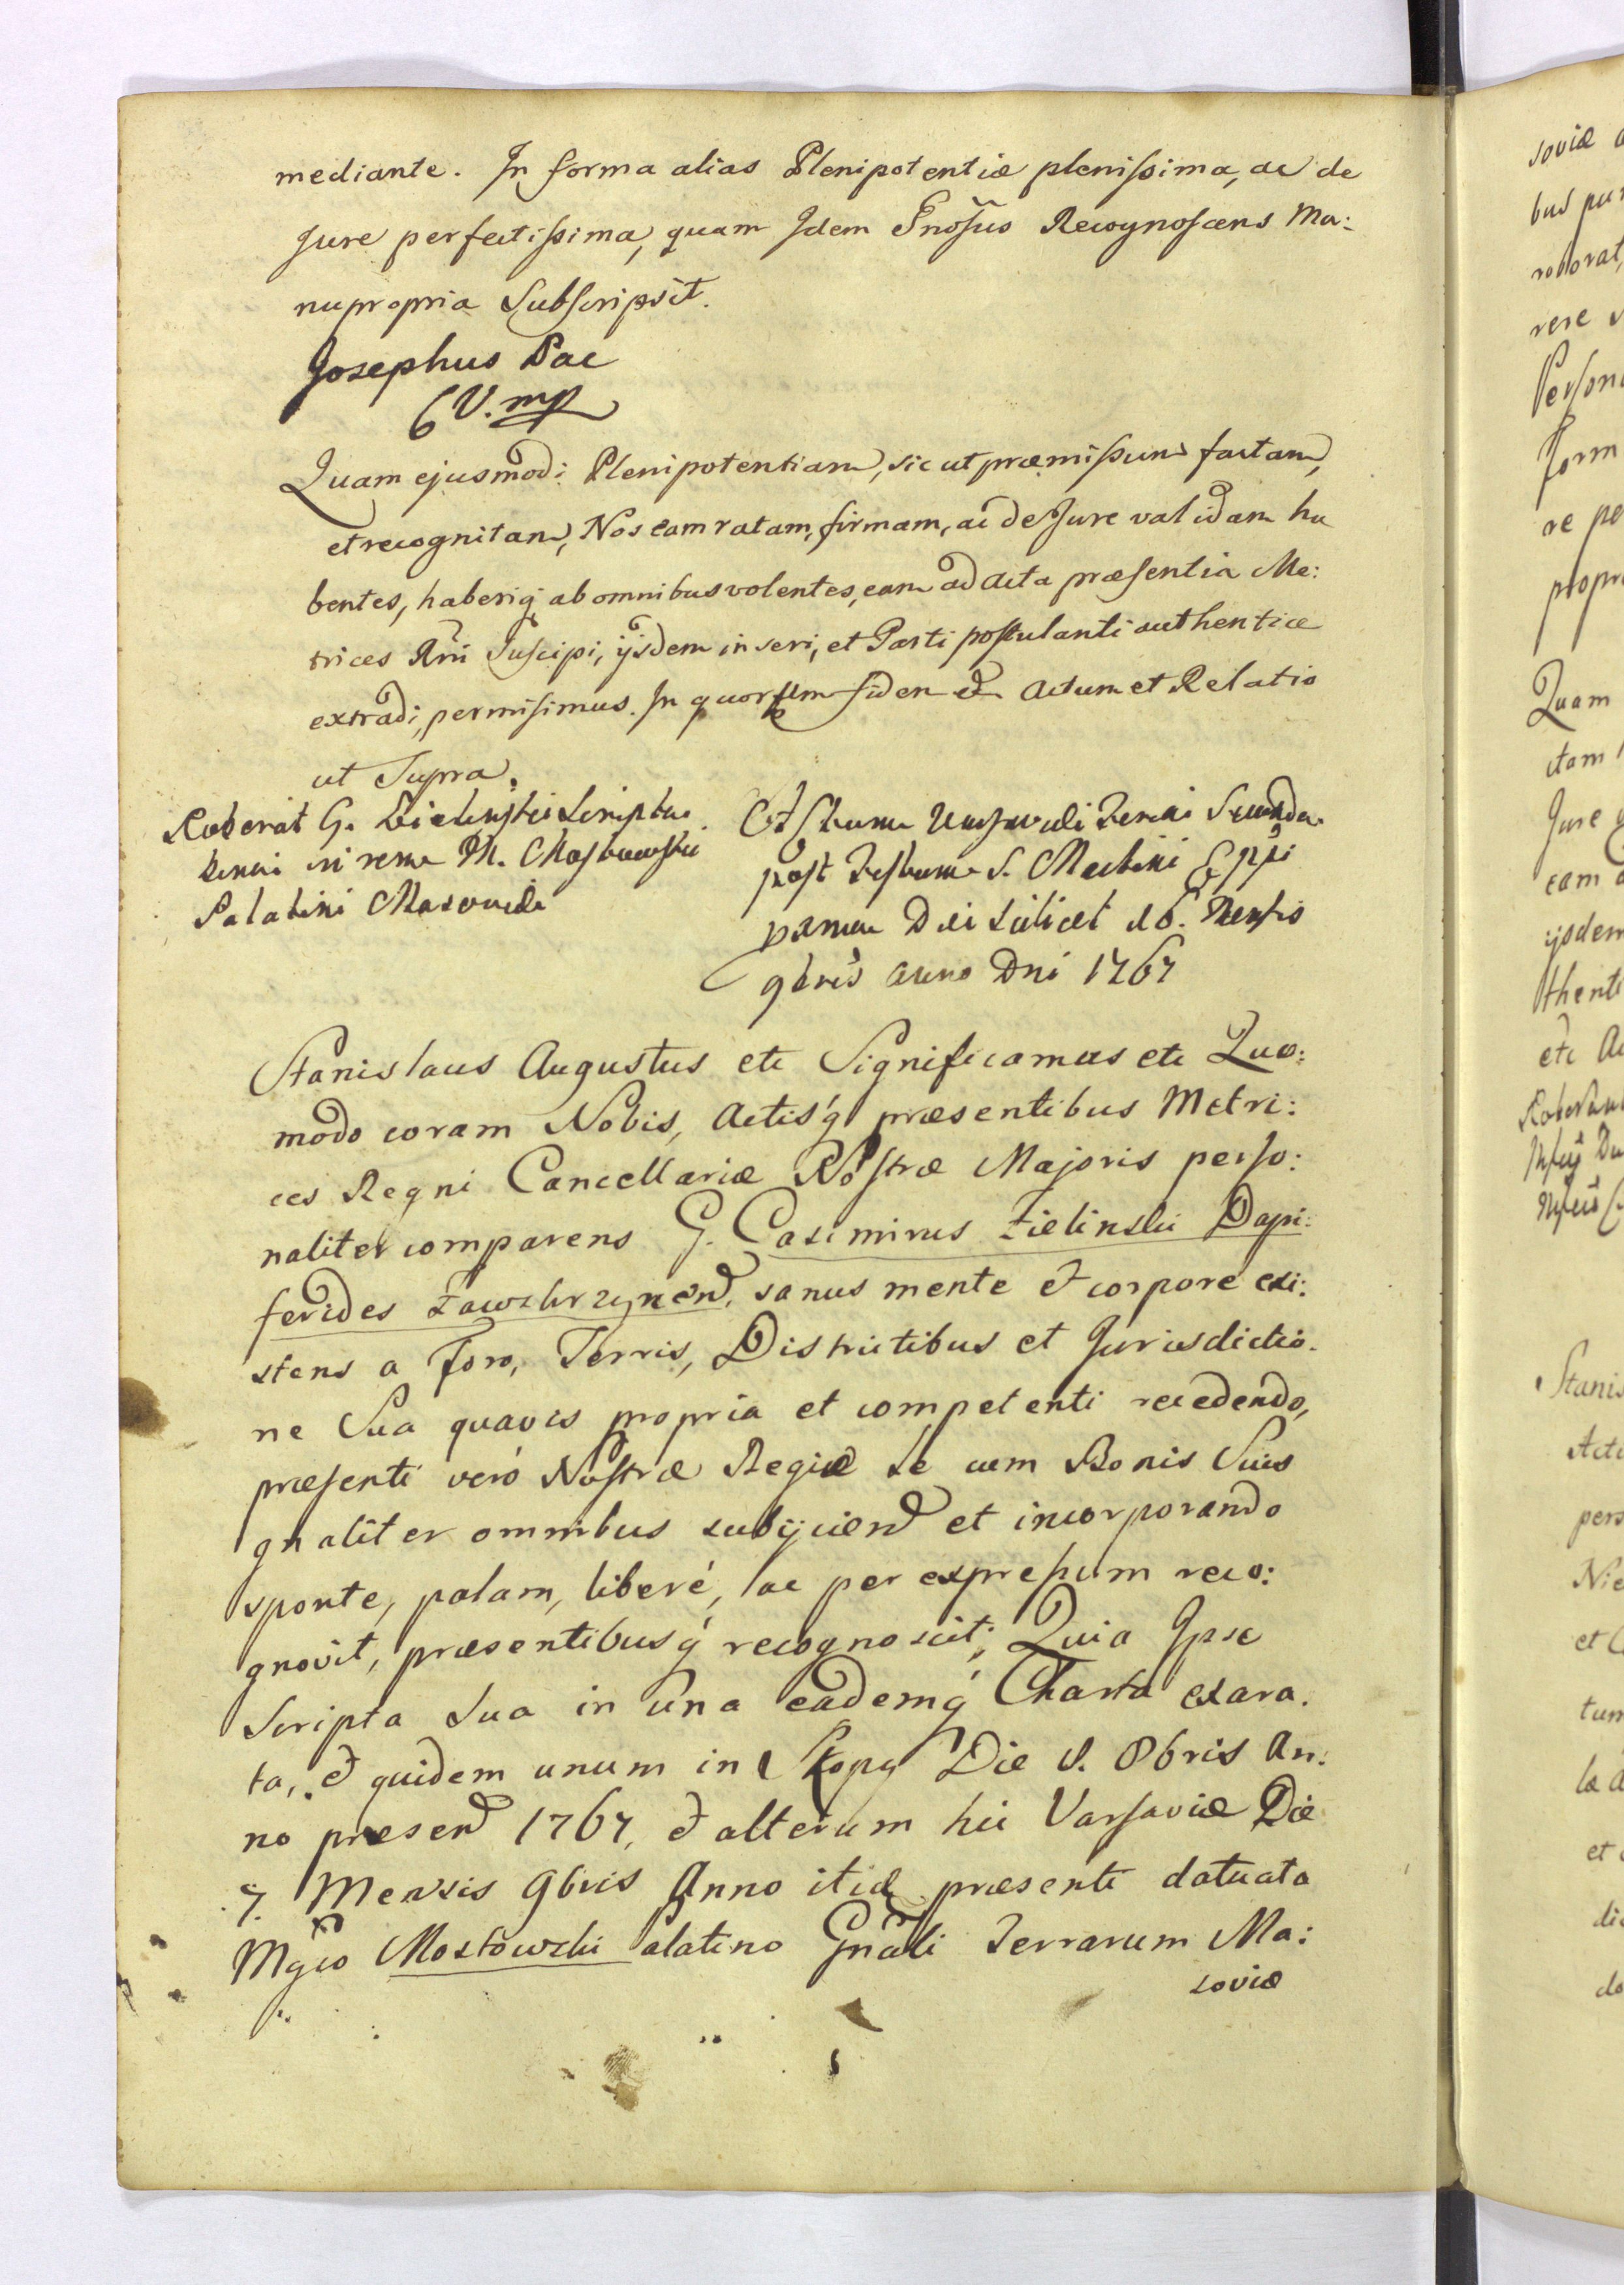 mediante. In forma alias Plenipotentiæ plenissima, ac de
Jure perfectissima, quam Idem Gnosus Recognoscens Ma:
nupropria Subscripsit.
Josephus Pac
mp
Quam ejusmodi Plenipotentiam, sic ut præmissum factam,
et recognitam, Nos eam ratam, firmam, ac de Jure validam ha
bentes, haberiq ab omnibus volentes, eam ad Acta præsentia Me:
trices Rni Suscipi, ijsdem inseri, et Parti postulanti authentice
extradi, permisimus. In quorum fidem et Actum et Relatio
ut Supra.
Roborat G. Zielinski Scripta
in rem M. Mostowski
Palatini Masoviæ
Actum Varsaviæ Feria Secunda
post Festum S. Martini Eppi
Die scilicet 16. Mensis
9bris Anno Dni 1767
Stanislaus Augustus etc Significamus etc Quo:
modo coram Nobis, Actisq præsentibus Metri:
ces Regni Cancellariæ Nostræ Majoris perso:
naliter comparens G. Casimirus Zielinski Dapi:
ferides Zawskrzynen, sanus mente et corpore exi:
stens a Foro, Terris, Districtibus et Jurisdictio.
ne Sua quavis propria et competenti recedendo,
præsenti verò Nostræ Regiæ se cum Bonis Suis
gnaliter omnibus subijciend et incorporando
sponte, palam, liberé, ac per expressum reco:
gnovit, præsentibusq recognoscit; Quia Ipse
Scripta Sua in una eademq Charta exara.
ta, et quidem unum in Skopy Die V. 8bris An:
no præsen 1767, et alterum hic Varsaviæ Die
7. Mensis 9bris Anno itid præsenti datuata
Mgco Mostowski Palatino Gnali Terrarum Ma:
soviæ
soviæ
roborat,
rere
Form
re
propri
Quam
Jure
eam
ijsdem
thenti
etc
Stanis
Acti
pers
Nie
et
tum
et
do